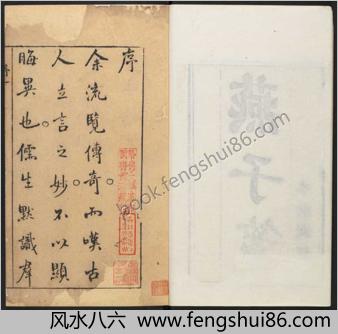 序
余流覧傳奇而嘆古
人立言之妙不以顯
晦異也儒生默識羣
燕子箋
book.fengshui86.com
风水八六 fengshui86.com